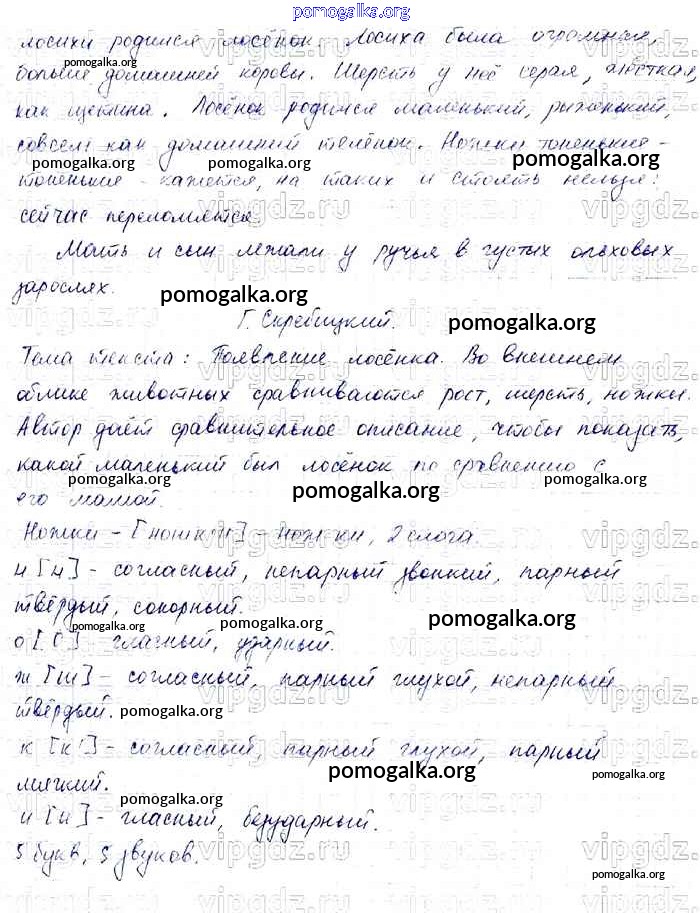 pomogalka.org
лосихи родился лосёнок. Лосиха была огромная,
больше домашней коровы. Шерсть у неё серая, жёсткая,
pomogalka.org pomogalka.org
как щетина. Лосёнок родился маленький, рыженький,
совсем как домашний телёнок. Ножки тоненькие -
pomogalka.org pomogalka.org pomogalka.org
тоненькие - кажется, на таких и стоять нельзя:
сейчас переломятся.
vipgdz.ru vipgdz.ru vipgdz.ru
Мать и сын лежали у ручья в густых ольховых
зарослях.
pomogalka.org
Г. Скребицкий.
pomogalka.org
Тема текста: Появление лосёнка. Во внешнем
облике животных сравниваются рост, шерсть, ножки.
Автор даёт сравнительное описание, чтобы показать,
какой маленький был лосёнок по сравнению с
его мамой.
pomogalka.org pomogalka.org
Ножки - [ношк'и] - нож-ки, 2 слога.
н [н] - согласный, непарный звонкий, парный
твёрдый, сонорный.
pomogalka.org pomogalka.org
о [о] - гласный, ударный.
ж [ш] - согласный, парный глухой, непарный
твёрдый.
pomogalka.org
к [к'] - согласный, парный глухой, парный
мягкий.
pomogalka.org pomogalka.org
и [и] - гласный, безударный.
pomogalka.org
5 букв, 5 звуков.
pomogalka.org